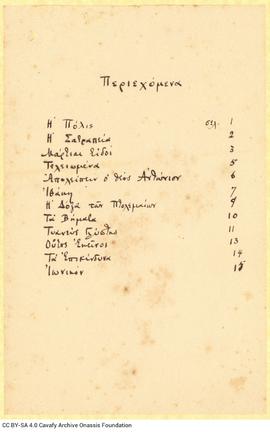 Περιεχόμενα
Η Πόλις σελ. 1
Η Σατραπεία 2
Μάρτιαι Ειδοί 3
Τελειωμένα 5
Απολείπειν ο θεός Αντώνιον 6
Ιθάκη 7
Η Δόξα των Πτολεμαίων 9
Τα Βήματα 10
Τυανεύς Γλύπτης 11
Ούτος Εκείνος 13
Τα Επικίνδυνα 14
Ιωνικόν 15
CC BY-SA 4.0 Cavafy Archive Onassis Foundation